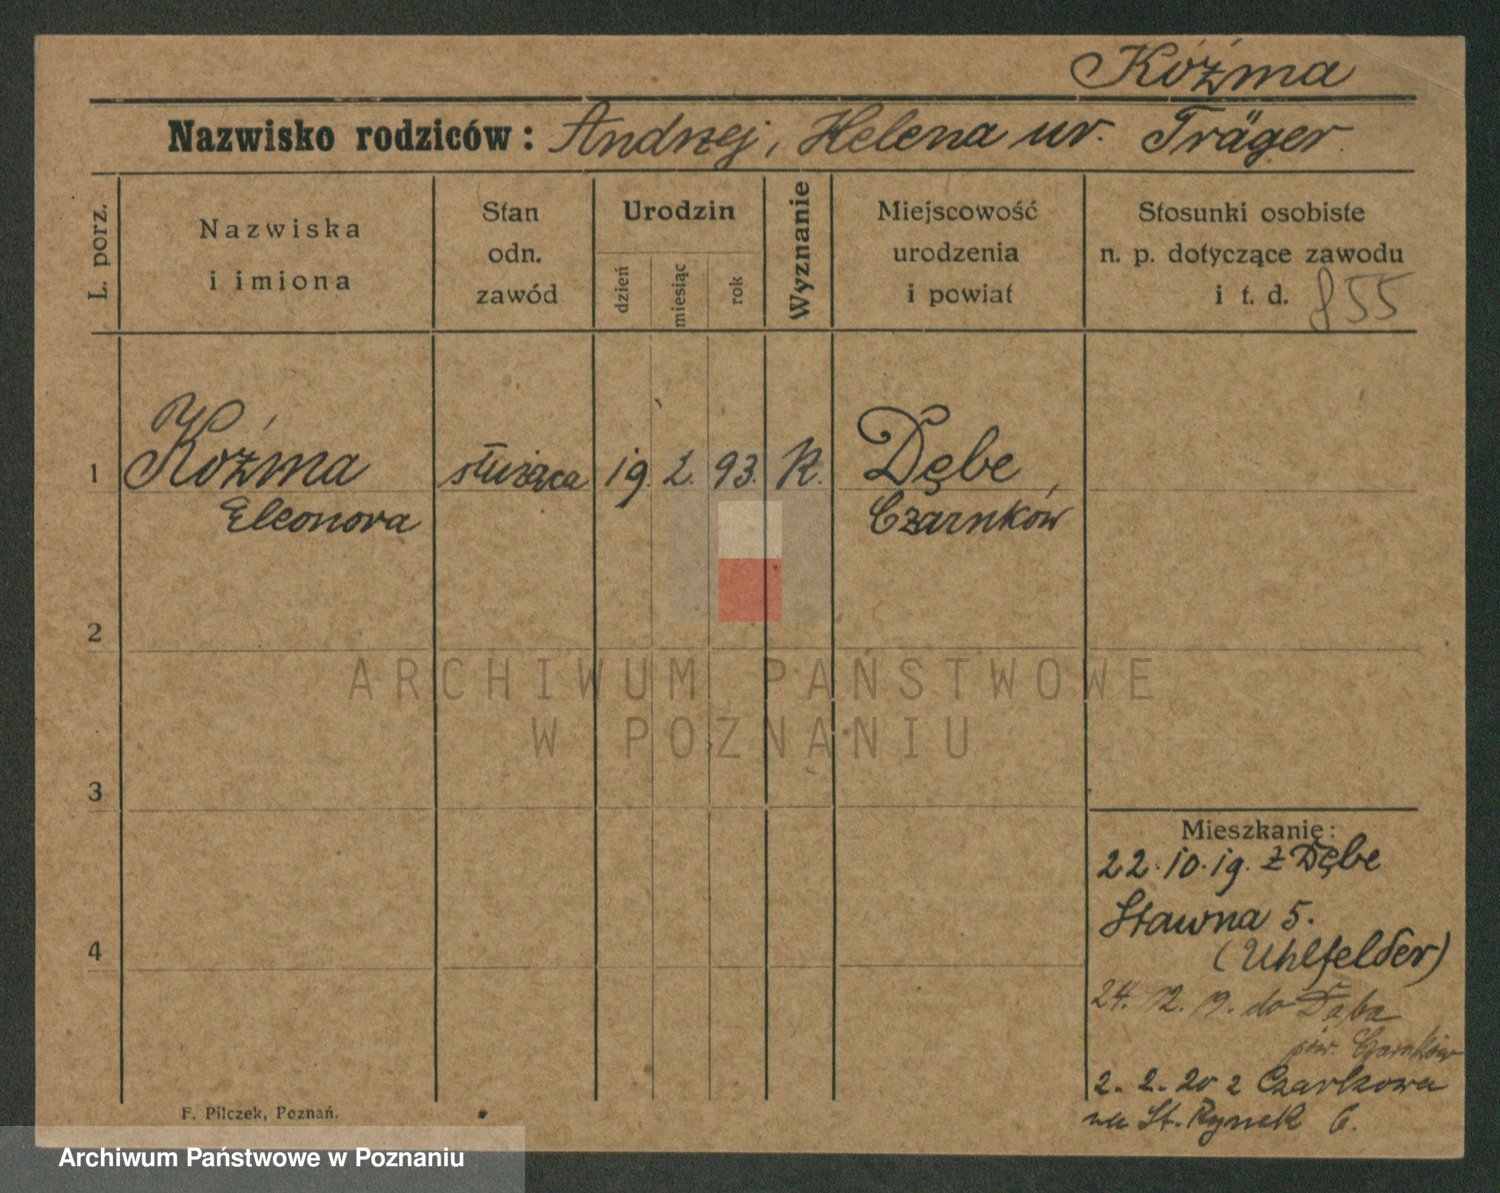 Kóźma
Nazwisko rodziców: Andrzej, Helena ur. Träger.
L. porz.
Nazwiska
i imiona
Stan
odn.
zawód
Urodzin
dzień
miesiąc
rok
Wyznanie
Miejscowość
urodzenia
i powiat
Stosunki osobiste
n. p. dotyczące zawodu
i t. d. 855
1 Kóźma służąca 19. 2. 93. K. Dębe,
Eleonora Czarnków
2
ARCHIWUM PAŃSTWOWE
W POZNANIU
3
Mieszkanie:
22.10.19. z Dębe
Stawna 5.
4
(Uhlfelder)
24. 12. 19. do Dęba
pow. Czarnków
2. 2. 20 z Czarkowa
na St. Rynek 6.
F. Pilczek, Poznań.
Archiwum Państwowe w Poznaniu